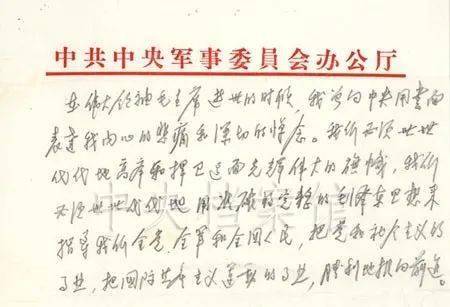 中共中央军事委員会办公厅
在伟大领袖毛主席逝世的时候，我曾向中央用书面
表达我内心的悲痛和深切的悼念。我们必须世世
代代地高举和捍卫这面光辉伟大的旗帜，我们
必须世世代代地用准确的完整的毛泽东思想来
指导我们全党、全军和全国人民，把党和社会主义的
事业，把国际共产主义运动的事业，胜利地推向前进。
中央档案馆